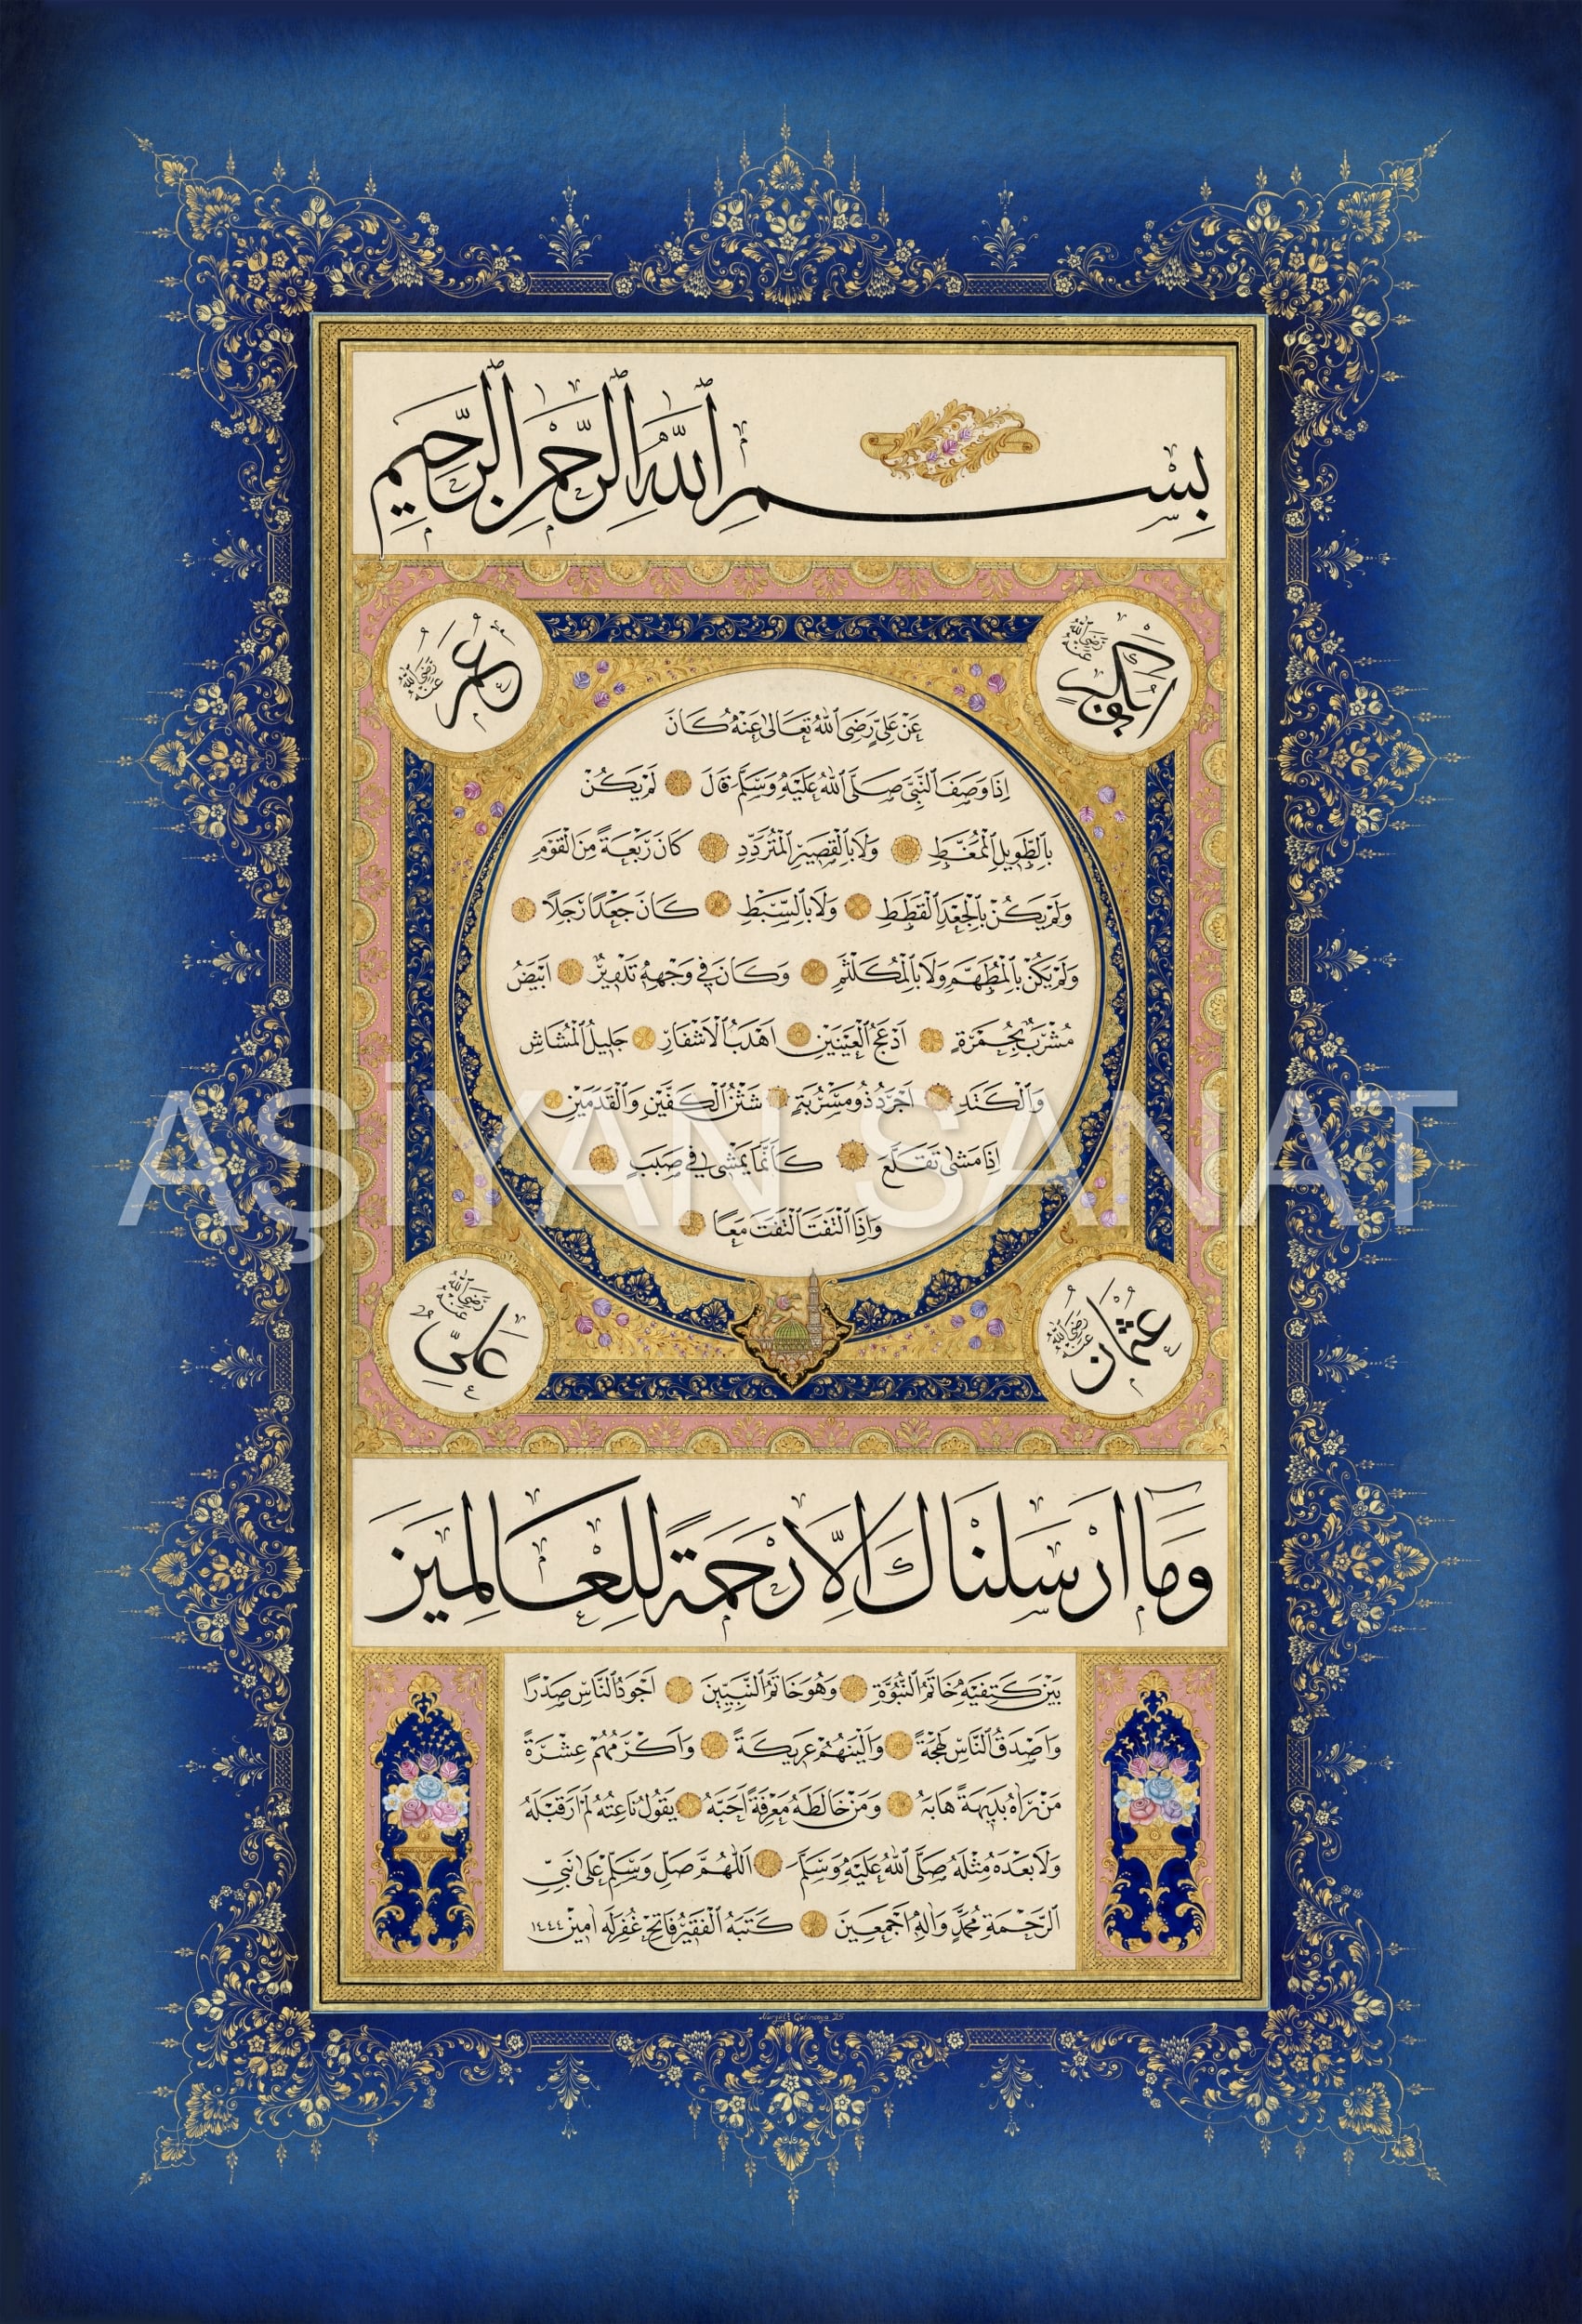 بِسْمِ ٱللّٰهِ ٱلرَّحْمٰنِ ٱلرَّحِيمِ
ابو بكر رَضِيَ اللّٰهُ عَنْهُ
عُمَرُ رَضِيَ اللّٰهُ عَنْهُ
عَنْ عَلِيٍّ رَضِيَ اللّٰهُ تَعَالٰى عَنْهُ كَانَ
اِذَا وَصَفَ النَّبِيَّ صَلَّى اللّٰهُ عَلَيْهِ وَسَلَّمَ قَالَ لَمْ يَكُنْ
بِالطَّوِيلِ الْمُمَّغِطِ وَلَا بِالْقَصِيرِ الْمُتَرَدِّدِ كَانَ رَبْعَةً مِنَ الْقَوْمِ
وَلَمْ يَكُنْ بِالْجَعْدِ الْقَطَطِ وَلَا بِالسَّبْطِ كَانَ جَعْدًا رَجِلًا
وَلَمْ يَكُنْ بِالْمُطَهَّمِ وَلَا بِالْمُكَلْثَمِ وَكَانَ فِي وَجْهِهِ تَدْوِيرٌ اَبْيَضُ
مُشْرَبٌ بِحُمْرَةٍ اَدْعَجُ الْعَيْنَيْنِ اَهْدَبُ الْاَشْفَارِ جَلِيلُ الْمُشَاشِ
وَالْكَتَدِ اَجْرَدُ ذُو مَسْرُبَةٍ شَثْنُ الْكَفَّيْنِ وَالْقَدَمَيْنِ
اِذَا مَشٰى تَقَلَّعَ كَاَنَّمَا يَمْشِي فِي صَبَبٍ
وَاِذَا الْتَفَتَ الْتَفَتَ مَعًا
عُثْمَانُ رَضِيَ اللّٰهُ عَنْهُ
عَلِيٌّ رَضِيَ اللّٰهُ عَنْهُ
وَمَا اَرْسَلْنَاكَ اِلَّا رَحْمَةً لِلْعَالَمِينَ
بَيْنَ كَتِفَيْهِ خَاتَمُ النُّبُوَّةِ وَهُوَ خَاتَمُ النَّبِيِّينَ اَجْوَدُ النَّاسِ صَدْرًا
وَاَصْدَقُ النَّاسِ لَهْجَةً وَاَلْيَنُهُمْ عَرِيكَةً وَاَكْرَمُهُمْ عِشْرَةً
مَنْ رَاٰهُ بَدِيهَةً هَابَهُ وَمَنْ خَالَطَهُ مَعْرِفَةً اَحَبَّهُ يَقُولُ نَاعِتُهُ لَمْ اَرَ قَبْلَهُ
وَلَا بَعْدَهُ مِثْلَهُ صَلَّى اللّٰهُ عَلَيْهِ وَسَلَّمَ اَللّٰهُمَّ صَلِّ وَسَلِّمْ عَلٰى نَبِيِّ
الرَّحْمَةِ مُحَمَّدٍ وَاٰلِهِ اَجْمَعِينَ كَتَبَهُ الْفَقِيرُ فَاتِحْ غُفِرَ لَهُ اٰمِينْ ١٤٤٤
AŞİYAN SANAT